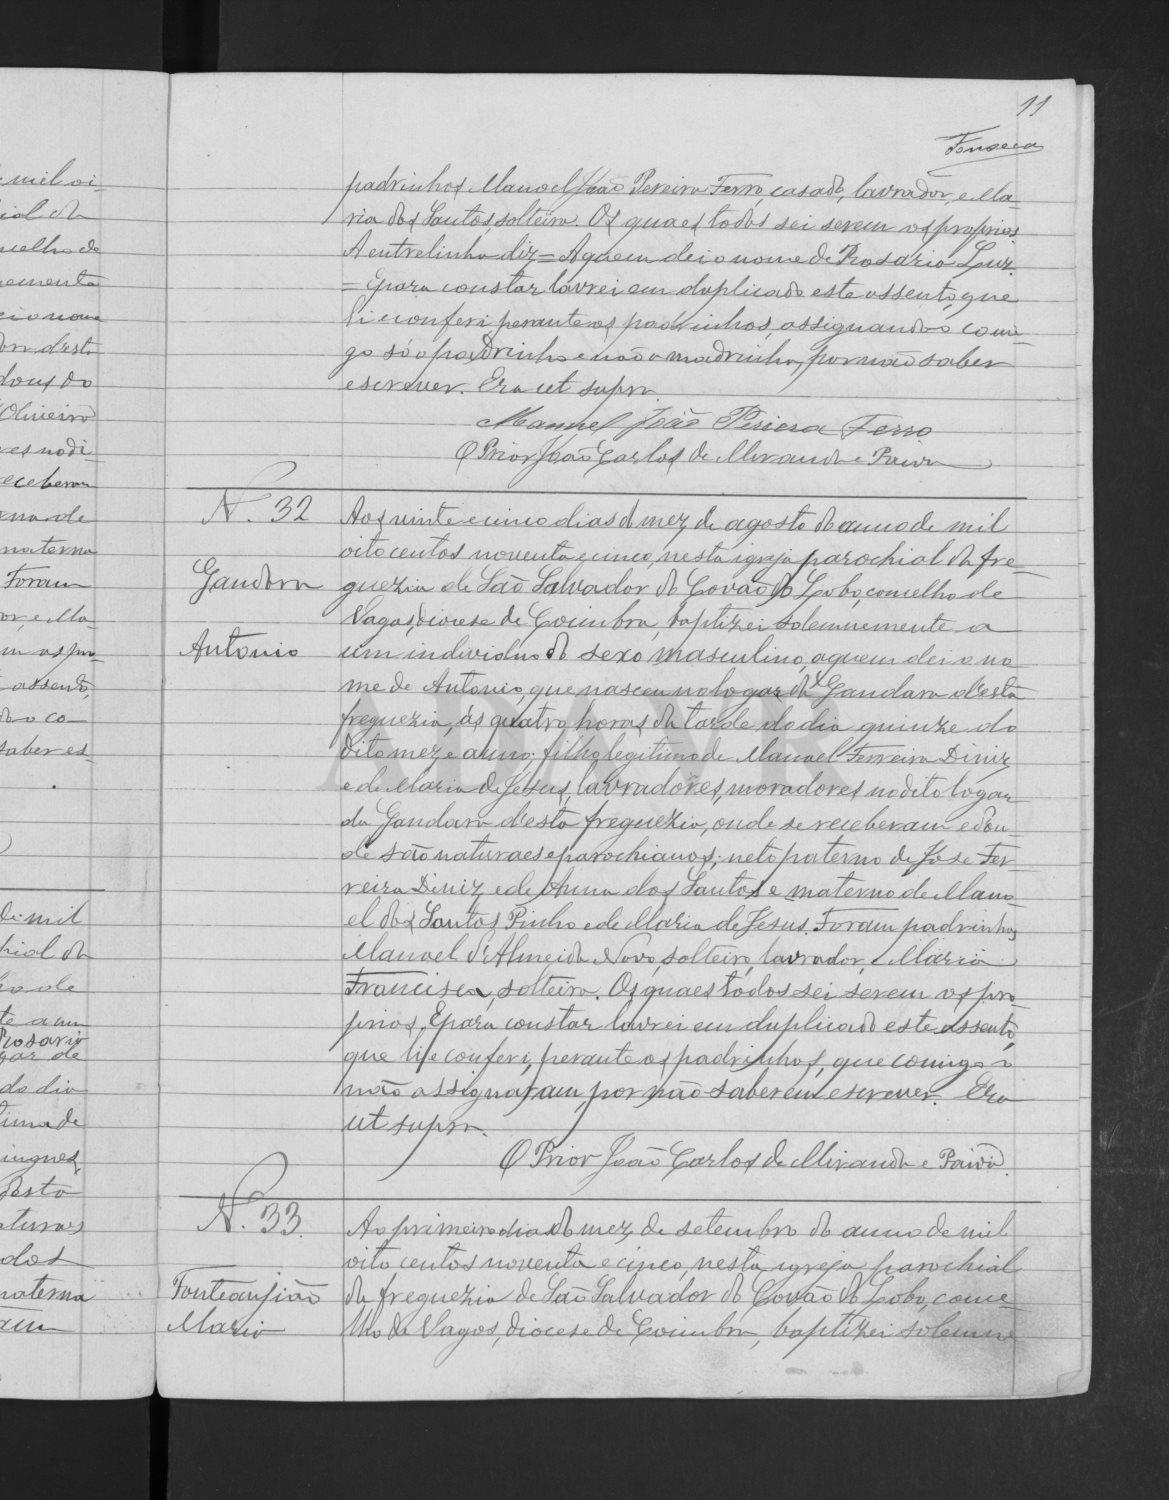 11
Fonseca
padrinhos Manoel João Pereira Ferro, casado, lavrador, e Ma-
ria dos Santos, solteira. Os quaes todos sei serem os proprios.
A entrelinha diz = A quem dei o nome de Rosario Luz.
= E para constar lavrei em duplicado este assento, que
li e conferi perante os padrinhos assignando co comi-
go só o padrinho e não a madrinha, por não saber
escrever. Era ut supra.
Manuel João Piriera Ferro
O Prior João Carlos de Miranda e Paiva
N. 32
Gandara
Antonio
Aos vinte e cinco dias do mez de agosto do anno de mil
oito centos noventa e cinco, nesta igreja parochial da fre-
guezia de São Salvador do Covão do Lobo, concelho de
Vagos, diocese de Coimbra, baptizei solemnemente a
um individuo do sexo masculino, a quem dei o no
me de Antonio, que nasceu no logar da Gandara d'esta
freguezia, ás quatro horas da tarde do dia quinze do
dito mez e anno, filho legitimo de Manoel Ferreira Diniz
e de Maria de Jesus, lavradores, moradores no dito logar
da Gandara d'esta freguezia, onde se receberam e don-
de são naturaes e parochianos; neto paterno de José Fer-
reira Diniz e de Anna dos Santos e materno de Mano-
el dos Santos Pinho e de Maria de Jesus. Foram padrinhos
Manoel d'Almeida Novo, solteiro, lavrador, e Maria
Francisca, solteira. Os quaes todos sei serem os pro-
prios. E para constar lavrei em duplicado este assento,
que li e conferi, perante os padrinhos, que comigo o
não assignaram, por não saberem escrever. Era
ut supra.
O Prior João Carlos de Miranda e Paiva.
N. 33.
Fonteanjião
Maria
Ao primeiro dia do mez de setembro do anno de mil
oito centos noventa e cinco, nesta igreja parochial
da freguezia de São Salvador do Covão do Lobo, conce-
lho de Vagos, diocese de Coimbra, baptizei solemne